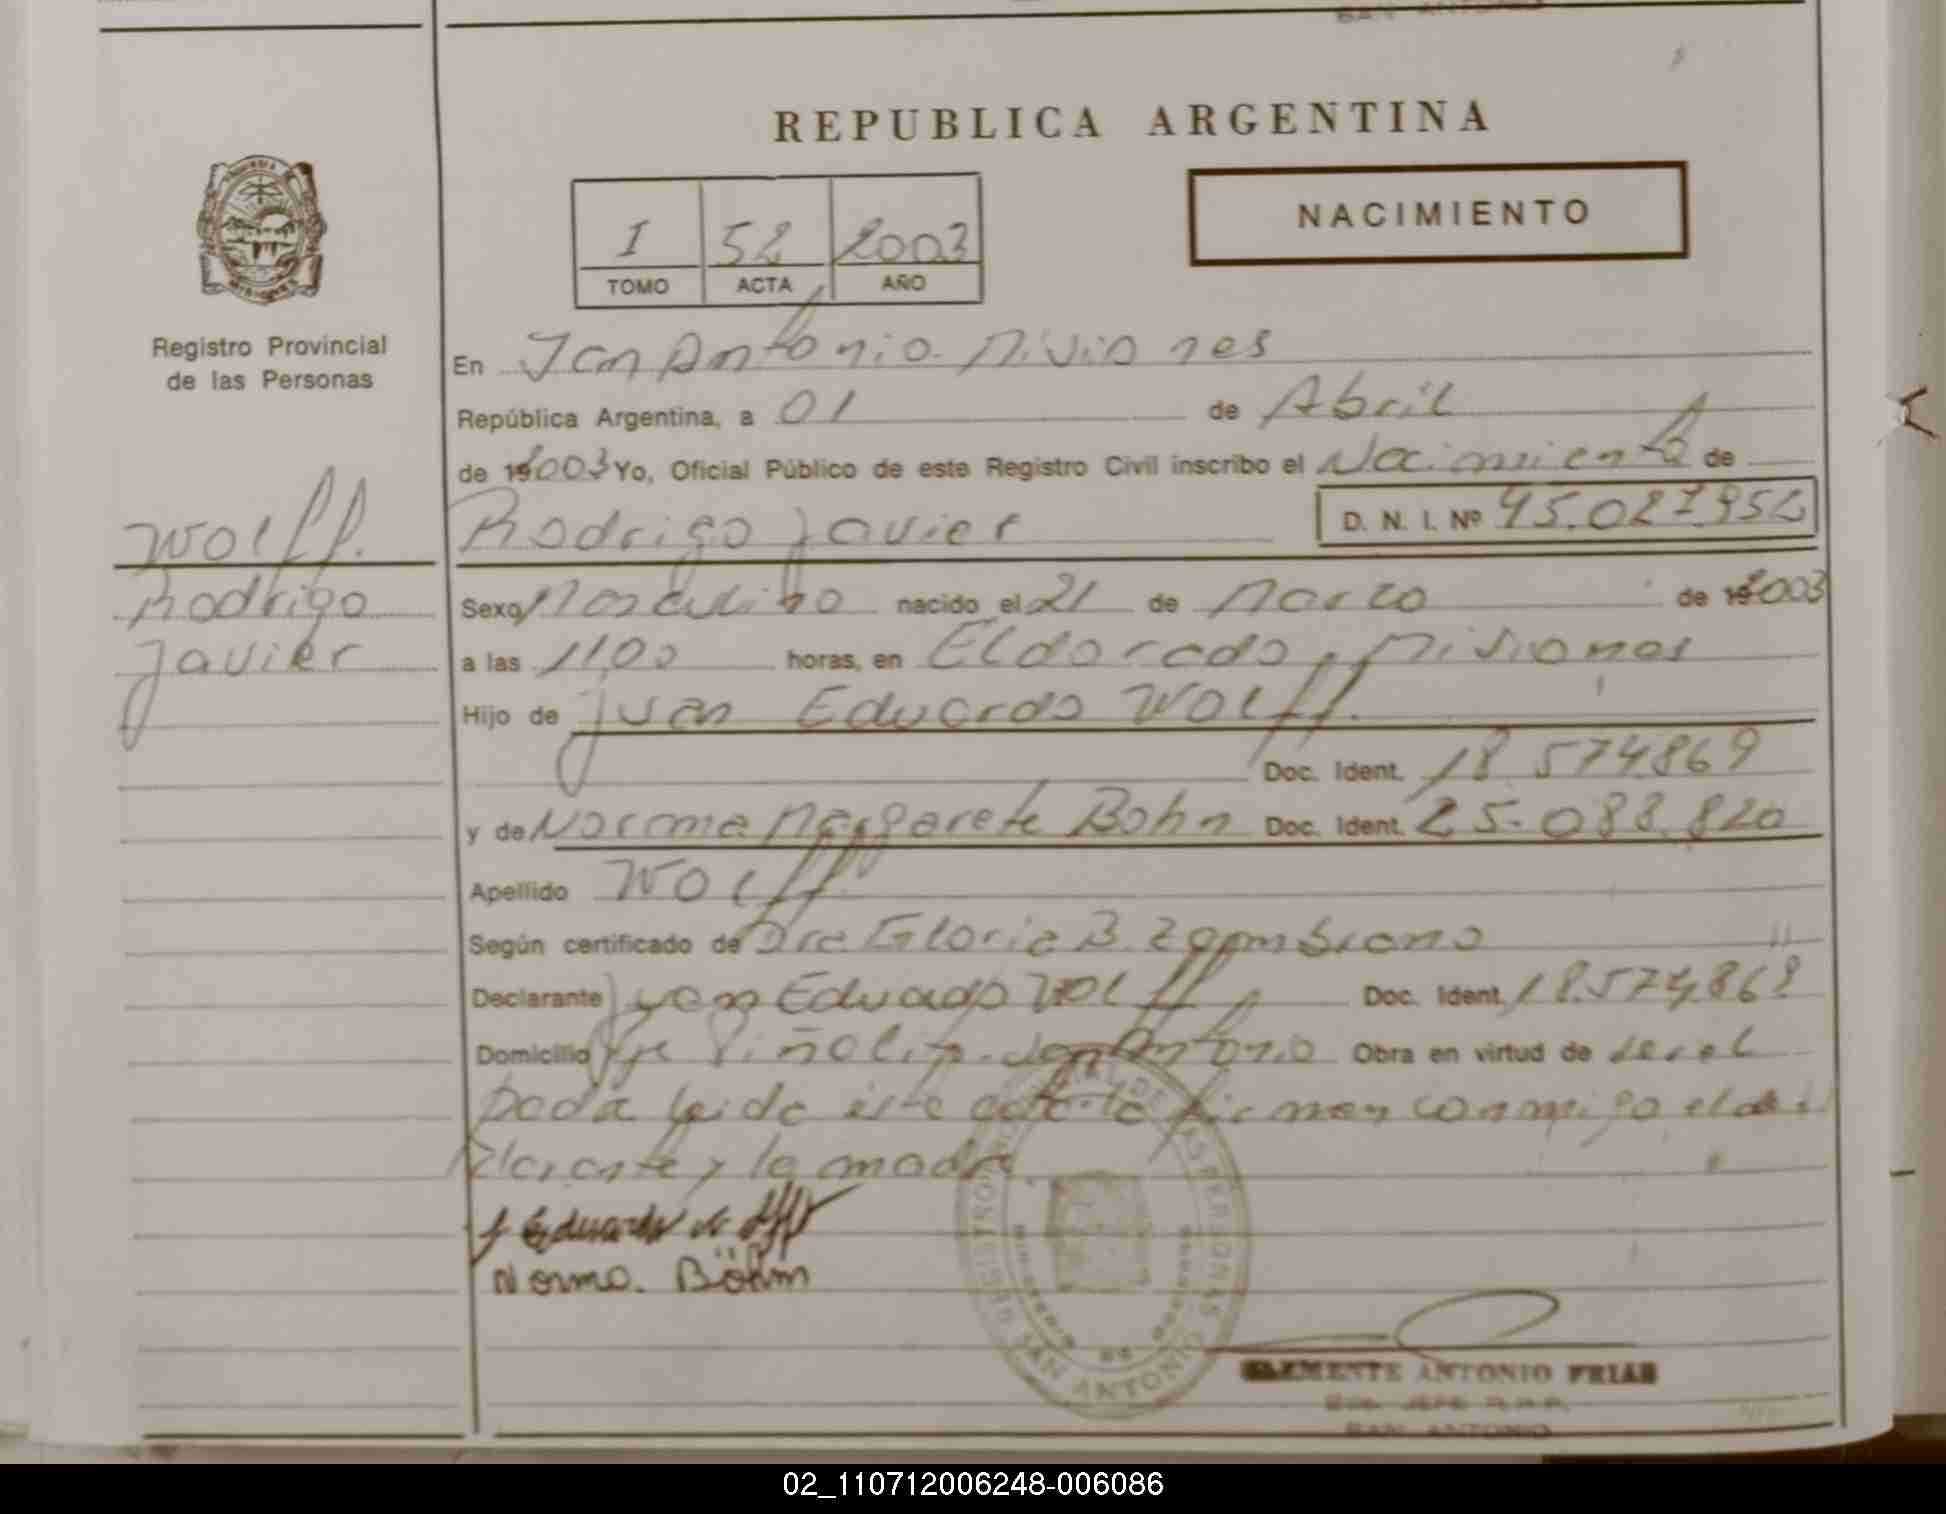 REPUBLICA ARGENTINA
NACIMIENTO
I 52 2003
TOMO ACTA AÑO
Registro Provincial
de las Personas
En San Antonio. Misiones
República Argentina, a 01 de Abril
de 2003 Yo, Oficial Público de este Registro Civil inscribo el Nacimiento de
Wolff.
Rodrigo
Javier
Rodrigo Javier D. N. I. Nº 45.027.952
Sexo Masculino nacido el 21 de Marzo de 2003
a las 11,00 horas, en Eldorado, Misiones
Hijo de Juan Eduardo Wolff.
Doc. Ident. 18.574.869
y de Norma Margarete Bohn Doc. Ident. 25.088.820
Apellido Wolff.
Según certificado de Dra Gloria B. Zambrano
Declarante Juan Eduardo Wolff Doc. Ident. 18.574.869
Domicilio Piñalito. San Antonio Obra en virtud de ser el
leida este acta la firman conmigo el de
clarante y la madre
Eduardo
Norma. Böhm
REGISTRO PROVINCIAL DE LAS PERSONAS
SAN ANTONIO
CLEMENTE ANTONIO FRIAS
SAN ANTONIO
02_110712006248-006086